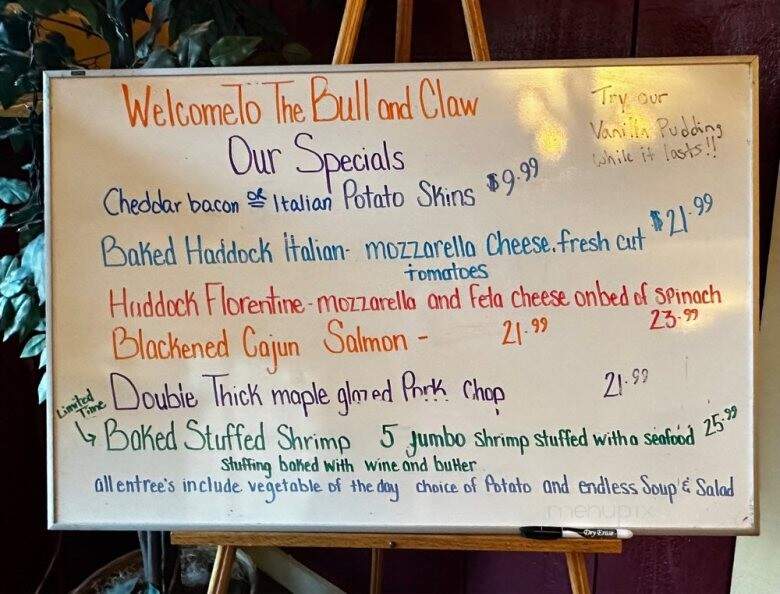 WelcomeTo The Bull and Claw
Try our
Vanilla Pudding
while it lasts!!
Our Specials
Cheddar bacon or Italian Potato Skins $9.99
Baked Haddock Italian- mozzarella Cheese. fresh cut $21.99
tomatoes
Haddock Florentine - mozzarella and feta cheese on bed of spinach
23.99
Blackened Cajun Salmon - 21.99
Double Thick maple glazed Pork Chop 21.99
Limited
Time
Baked Stuffed Shrimp 5 jumbo shrimp stuffed with a seafood 25.99
Stuffing baked with wine and butter
all entree's include vegetable of the day choice of Potato and endless Soup & Salad
menupix
Dry Erase